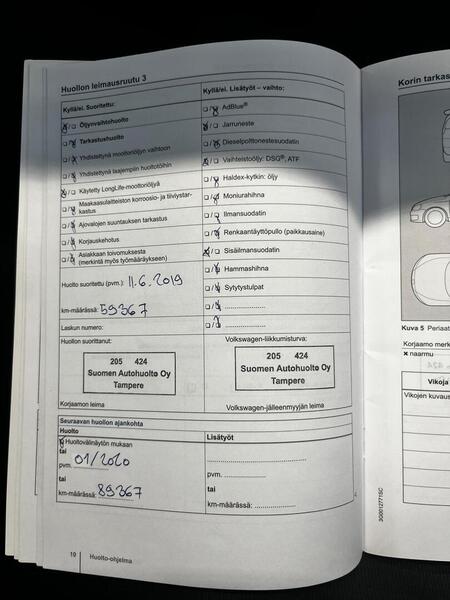 Huollon leimausruutu 3
Kyllä/ei. Suoritettu:
Öljynvaihtohuolto
Tarkastushuolto
Yhdistettynä moottoriöljyn vaihtoon
Yhdistettynä laajempiin huoltotöihin
Käytetty LongLife-moottoriöljyä
Maakaasulaitteiston korroosio- ja tiiviystar-
kastus
Ajovalojen suuntauksen tarkastus
Korjauskehotus
Asiakkaan toivomuksesta
(merkintä myös työmääräykseen)
Huolto suoritettu (pvm.): 11.6.2019
km-määrässä: 59367
Laskun numero:
Huollon suorittanut:
205 424
Suomen Autohuolto Oy
Tampere
Korjaamon leima
Kyllä/ei. Lisätyöt – vaihto:
AdBlue®
Jarruneste
Dieselpolttonestesuodatin
Vaihteistoöljy: DSG®, ATF
Haldex-kytkin: öljy
Moniurahihna
Ilmansuodatin
Renkaantäyttöpullo (paikkausaine)
Sisäilmansuodatin
Hammashihna
Sytytystulpat
Volkswagen-liikkumisturva:
205 424
Suomen Autohuolto Oy
Tampere
Volkswagen-jälleenmyyjän leima
Seuraavan huollon ajankohta
Huolto
Huoltovälinäytön mukaan
tai
pvm. 01/2020
tai
km-määrässä: 89367
Lisätyöt
pvm.
tai
km-määrässä:
19 Huolto-ohjelma
Korin tarkas
Kuva 5 Periaat
Korjaamo merk
× naarmu
Vikoja
Vikojen kuvaus
3G0012771SC